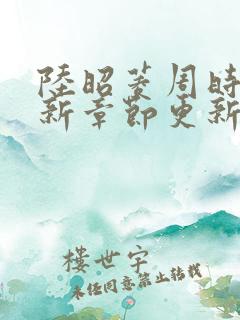 陸昭菱周時
新章節更新
樓世宇
未經同意禁止轉載